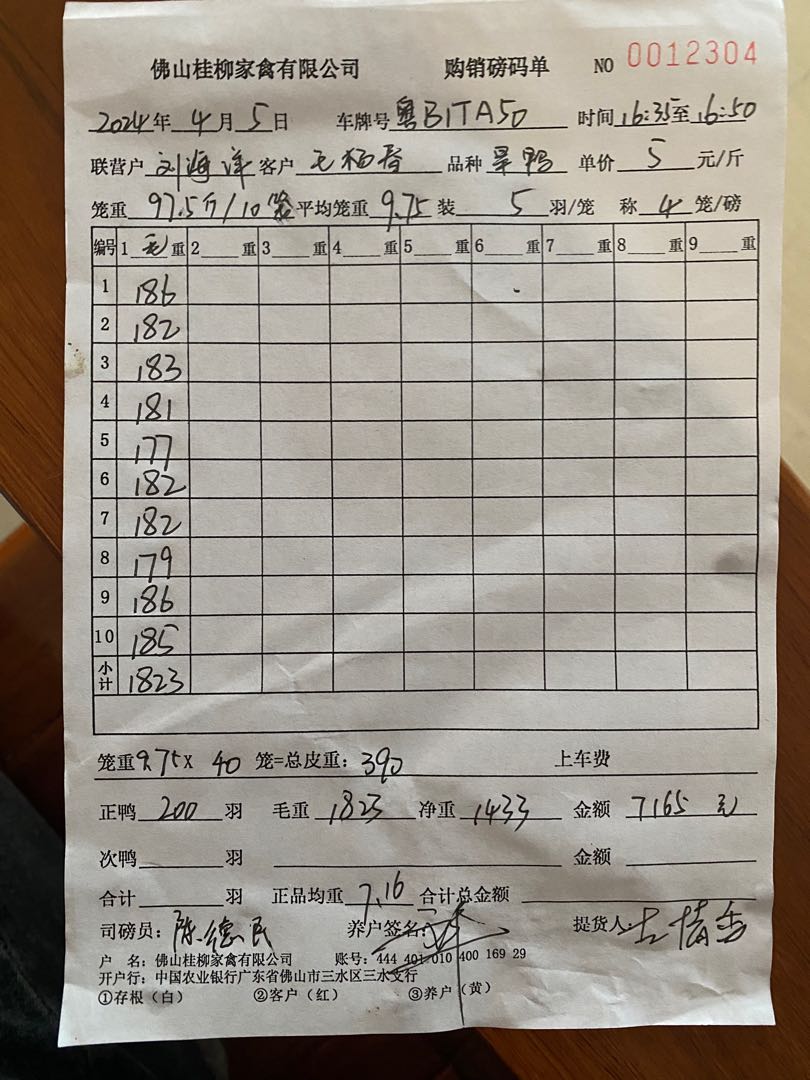 佛山桂柳家禽有限公司 购销磅码单 NO 0012304
2024年 4月 5日 车牌号 粤B1TA50 时间 16:35至16:50
联营户 刘海洋 客户 品种 旱鸭 单价 5 元/斤
笼重 97.5斤/10笼 平均笼重 9.75 装 5 羽/笼 称 4 笼/磅
编号 1 毛 重 2 重 3 重 4 重 5 重 6 重 7 重 8 重 9 重
1 186
2 182
3 183
4 181
5 177
6 182
7 182
8 179
9 186
10 185
小计 1823
笼重9.75X 40 笼=总皮重: 390 上车费
正鸭 200 羽 毛重 1823 净重 1433 金额 7165 元
次鸭 羽 金额
合计 羽 正品均重 7.16 合计总金额
司磅员: 陈德民 养户签名: 提货人:
户 名: 佛山桂柳家禽有限公司 账号: 444 401 010 400 169 29
开户行: 中国农业银行广东省佛山市三水区三水支行
①存根(白) ②客户(红) ③养户(黄)